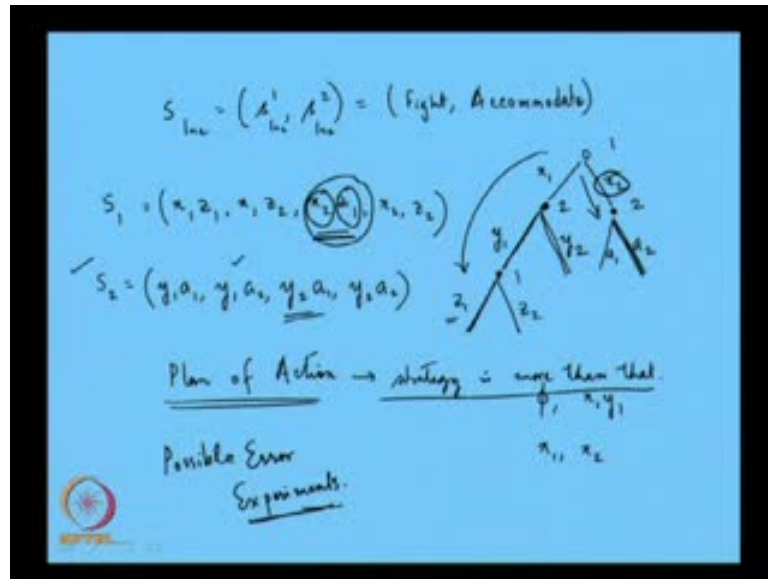 S_Inc = (s¹_Inc, s²_Inc) = (Fight, Accommodate)
1
x₁ x₂
S₁ = (x₁z₁, x₁z₂, x₂z₁, x₂z₂)
2 2
y₁ y₂ a₁ a₂
1
S₂ = (y₁a₁, y₁a₂, y₂a₁, y₂a₂)
z₁ z₂
Plan of Action → strategy is more than that.
x₁y₁
Possible Error
x₁, x₂
Experiments.
NPTEL